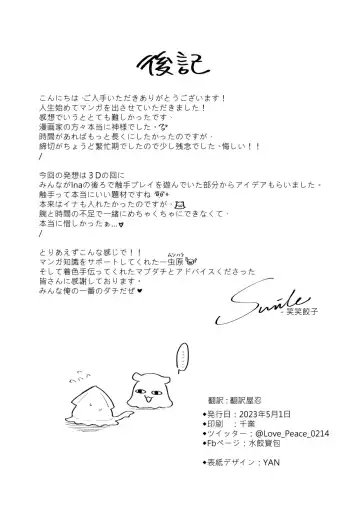 後記
こんにちは、ご入手いただきありがとうございます！
人生始めてマンガを出させていただきました！
感想でいうととても難しかったです、
漫画家の方々本当に神様でした、
時間があればもっと長くにしたかったのですが、
締切がちょうど繁忙期でしたので少し残念でした、悔しい！！
/
今回の発想は３Ｄの回に
みんながinaの後ろで触手プレイを遊んでいた部分からアイデアもらいました、
触手って本当にいい題材ですね
本来はイナも入れたかったのですが、
腕と時間の不足で一緒にめちゃくちゃにできなくて、
本当に惜しかったぁ…
/
とりあえずこんな感じで！！
マンガ知識をサポートしてくれた一虫原
そして着色手伝ってくれたマブダチとアドバイスくださった
皆さんに感謝しております、
みんな俺の一番のダチだぜ♥
Smile
- 笑笑餃子
......
翻訳：翻訳屋忍
◆発行日：2023年5月1日
◆印刷　：千團
◆ツイッター：@Love_Peace_0214
◆Fbページ：水餃寶包
◆表紙デザイン：YAN